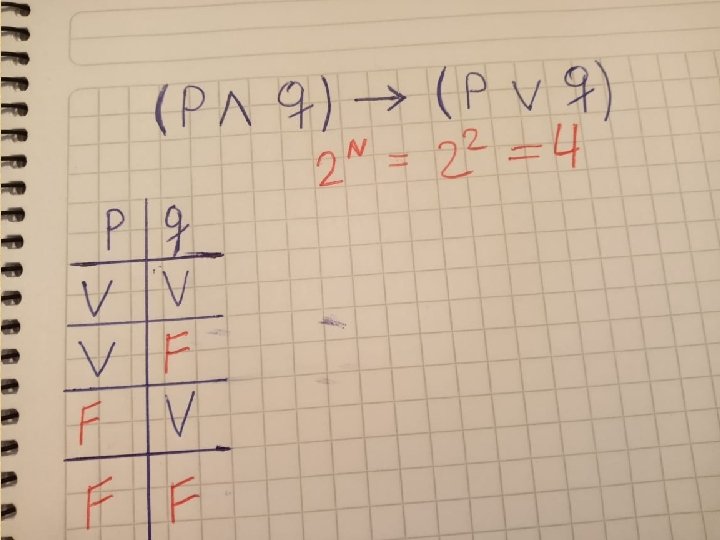 (P ∧ q) → (P ∨ q)
2^N = 2^2 = 4
P q
V V
V F
F V
F F